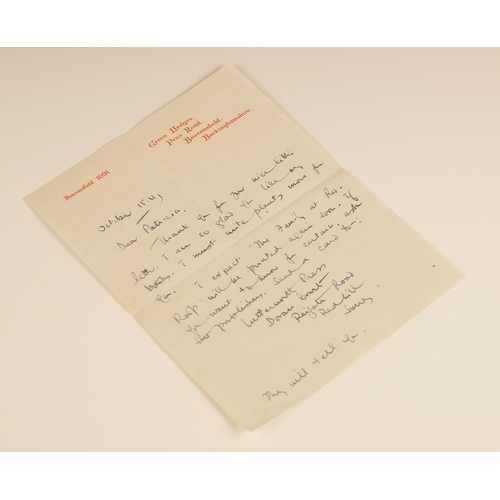 Green Hedges,
Penn Road,
Beaconsfield,
Buckinghamshire.
Beaconsfield 1091
October 15.
Dear Patricia,
Thank you for your nice little
letter. I am so glad you like my
books. I must write plenty more for
you. I expect 'The Family at Red-
Roofs' will be printed again soon. If
you want to know for certain, ask
the publishers. Send a card to:
Lutterworth Press
Doran Court
Reigate Road
Redhill
Surrey.
They will tell you.